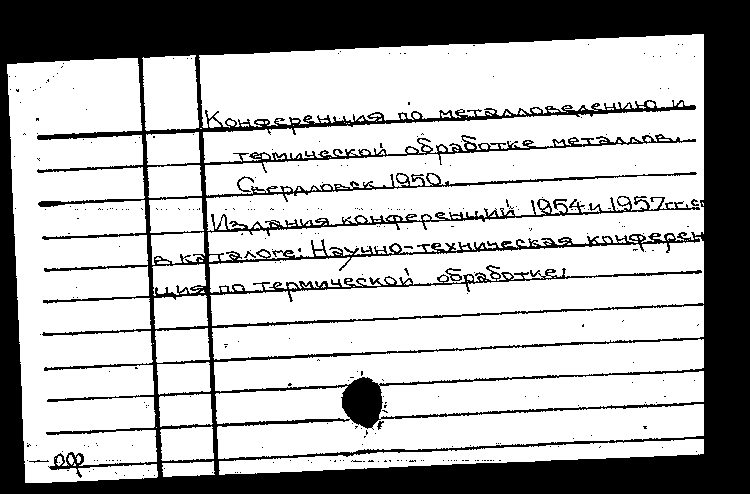 Конференция по металловедению и
термической обработке металлов.
Свердловск. 1950.
Издания конференций 1954 и 1957 гг. см
в каталоге: Научно-техническая конферен
ция по термической обработке,
оф